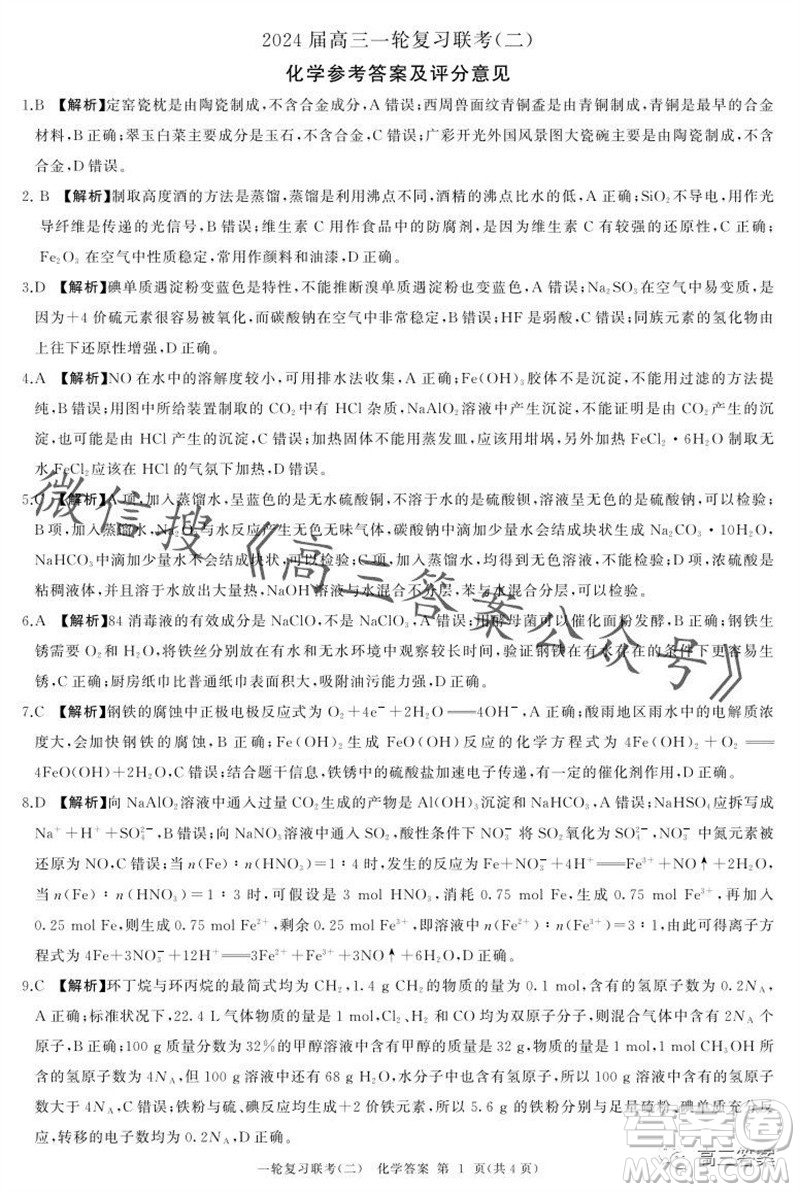 2024 届高三一轮复习联考(二)
化学参考答案及评分意见
1.B 【解析】定窑瓷枕是由陶瓷制成,不含合金成分,A 错误;西周兽面纹青铜盉是由青铜制成,青铜是最早的合金
材料,B 正确;翠玉白菜主要成分是玉石,不含合金,C 错误;广彩开光外国风景图大瓷碗主要成分是陶瓷,不含
合金,D 错误。
2. B 【解析】制取高度酒的方法是蒸馏,蒸馏是利用沸点不同,酒精的沸点比水的低,A 正确;SiO₂ 不导电,用作光
导纤维是传递的光信号,B 错误;维生素 C 用作食品中的防腐剂,是因为维生素 C 有较强的还原性,C 正确;
Fe₂O₃ 在空气中性质稳定,常用作外墙和油漆,D 正确。
3.D 【解析】碘单质遇淀粉变蓝色是特性,不能推断溴单质遇淀粉也变蓝色,A 错误;Na₂SO₃ 在空气中易变质,是
因为+4 价硫元素很容易被氧化,而碳酸钠在空气中非常稳定,B 错误;HF 是弱酸,C 错误;同族元素的氢化物由
上往下还原性增强,D 正确。
4.A 【解析】NO 在水中的溶解度较小,可用排水法收集,A 正确;Fe(OH)₃ 胶体不是沉淀,不能用过滤的方法提
纯,B 错误;用图中所给装置制取的 CO₂ 中有 HCl 杂质,NaAlO₂ 溶液中产生沉淀,不能证明是 CO₂ 产生的沉
淀,也可能是 HCl 产生的沉淀,C 错误;加热固体不能用蒸发皿,应该用坩埚,另外用 FeCl₂·6H₂O 制取无
水 FeCl₂ 应该在 HCl 的气氛下加热,D 错误。
5.C 【解析】A 项,加入蒸馏水,呈蓝色的是无水硫酸铜,不溶于水的是硫酸钡,溶液呈无色的是硫酸钠,可以检验;
B 项,加入蒸馏水,Na₂O₂ 与水反应产生无色无味气体,碳酸钠中滴加少量水会结成块状生成 Na₂CO₃·10H₂O,
NaHCO₃ 中滴加少量水不会结成块状,可以检验;C 项,加入蒸馏水,均得到无色溶液,不可以检验;D 项,浓硫酸是
粘稠状液体,NaOH 溶液与水混合不分层,苯与水混合分层,可以检验。
6.A 【解析】84 消毒液的有效成分是 NaClO,不是 NaClO₃,A 错误;用酵母菌可以催化面粉发酵,B 正确;钢铁生
锈需要 O₂ 和水,将铁丝分别放在有水和无水环境中观察较长时间,验证钢铁在有水存在的条件下更容易生
锈,C 正确;厨房纸巾比普通纸巾表面积大,吸附油污能力强,D 正确。
7.C 【解析】钢铁的腐蚀中正极电极反应式为 O₂+4e⁻+2H₂O══4OH⁻,A 错误;酸雨地区雨水中的电解质浓
度大,会加快钢铁的腐蚀,B 错误;Fe(OH)₂ 生成 FeO(OH)反应的化学方程式为 4Fe(OH)₂+O₂══
4FeO(OH)+2H₂O,C 正确;结合题干信息,铁锈中的硫酸盐加速电子传递,有一定的催化剂作用,D 错误。
8.D 【解析】向 NaAlO₂ 溶液中通入过量 CO₂ 生成的产物是 Al(OH)₃ 沉淀和 NaHCO₃,A 错误;NaHSO₄ 应拆写成
Na⁺+H⁺+SO₄²⁻,B 错误;向 NaNO₃ 溶液中通入 SO₂,酸性条件下 NO₃⁻ 将 SO₂ 氧化为 SO₄²⁻,NO₃⁻ 中氮元素被还
原为 NO,C 错误;当 n(Fe)∶n(HNO₃)=1∶4 时,发生的反应为 Fe+NO₃⁻+4H⁺══Fe³⁺+NO↑+2H₂O,
当 n(Fe)∶n(HNO₃)=1∶3 时,可假设是 3 mol HNO₃,消耗 0.75 mol Fe,生成 0.75 mol Fe³⁺,再加入
0.25 mol Fe,则生成 0.75 mol Fe²⁺,剩余 0.25 mol Fe³⁺,即溶液中 n(Fe²⁺)∶n(Fe³⁺)=3∶1,由此可得离子方
程式为 4Fe+3NO₃⁻+12H⁺══3Fe²⁺+Fe³⁺+3NO↑+6H₂O,D 正确。
9.C 【解析】环丁烷与环丙烷的最简式均为 CH₂,1.4 g CH₂ 的物质的量为 0.1 mol,含有的氢原子数为 0.2Nₐ,
A 正确;标准状况下,22.4 L 气体物质的量为 1 mol,Cl₂、H₂ 和 CO 均为双原子分子,则混合气体中含有 2Nₐ 个
原子,B 正确;100 g 质量分数为 32%的甲醇溶液中含有甲醇的质量为 32 g,物质的量为 1 mol,1 mol CH₃OH 中
含有氢原子数为 4Nₐ,但溶液中还有 68 g H₂O,水中也含有氢原子,所以 100 g 该溶液中含有的氢原子
数大于 4Nₐ,C 错误;铁粉与硫、碘反应均生成+2 价铁元素,所以 5.6 g 的铁粉分别与足量硫粉、碘单质充分反
应,转移的电子数均为 0.2Nₐ,D 正确。
一轮复习联考(二) 化学答案 第 1 页(共 4 页)
微信搜《高三答案公众号》
高三答案